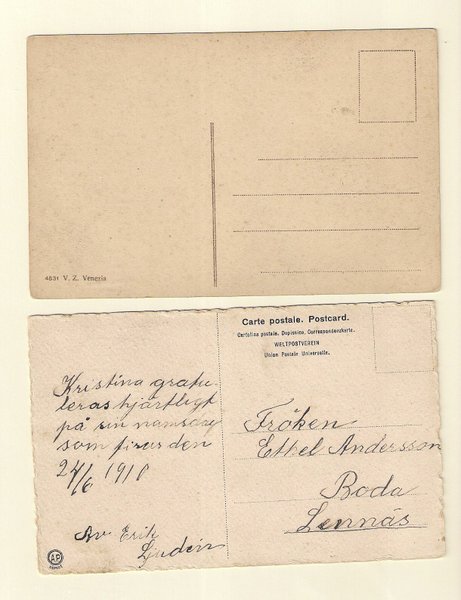 4631 V. Z. Venezia
Carte postale. Postcard.
Cartolina postale. Dopisnice. Correspondenzkarte.
WELTPOSTVEREIN
Union Postale Universelle.
Kristina gratu-
leras hjärtligt
på sin namnsdag
som firas den
24/6 1910
Av Erik
Fröken
Ethel Andersson
Boda
Lennäs